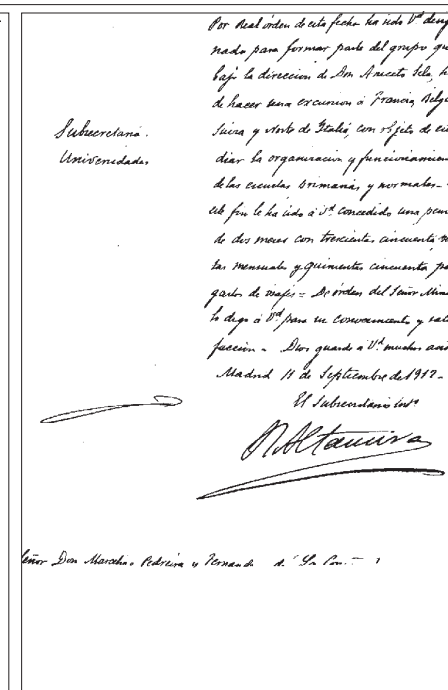 Por Real órden de esta fecha ha sido Vd desig
nado para formar parte del grupo qu
bajo la direccion de Don Aniceto Sela, h
de hacer una excursion á Francia, Belgi
Subsecretaría.
Suiza y Norte de Italia, con objeto de estu
Universidades
diar la organizacion y funcionamien
de las escuelas primarias y normales. -
este fin le ha sido á Vd concedido una pen
de dos meses con trescientas cincuenta
tas mensuales y quinientas cincuenta pa
gastos de viajes = De órden del Señor Mini
lo digo á Vd para su conocimiento y satis
faccion. - Dios guarde á Vd muchos añ
Madrid 11 de Septiembre de 1912.-
El Subsecretario
R Altamira
eñor Don Marcelino Pedreira y Fernand